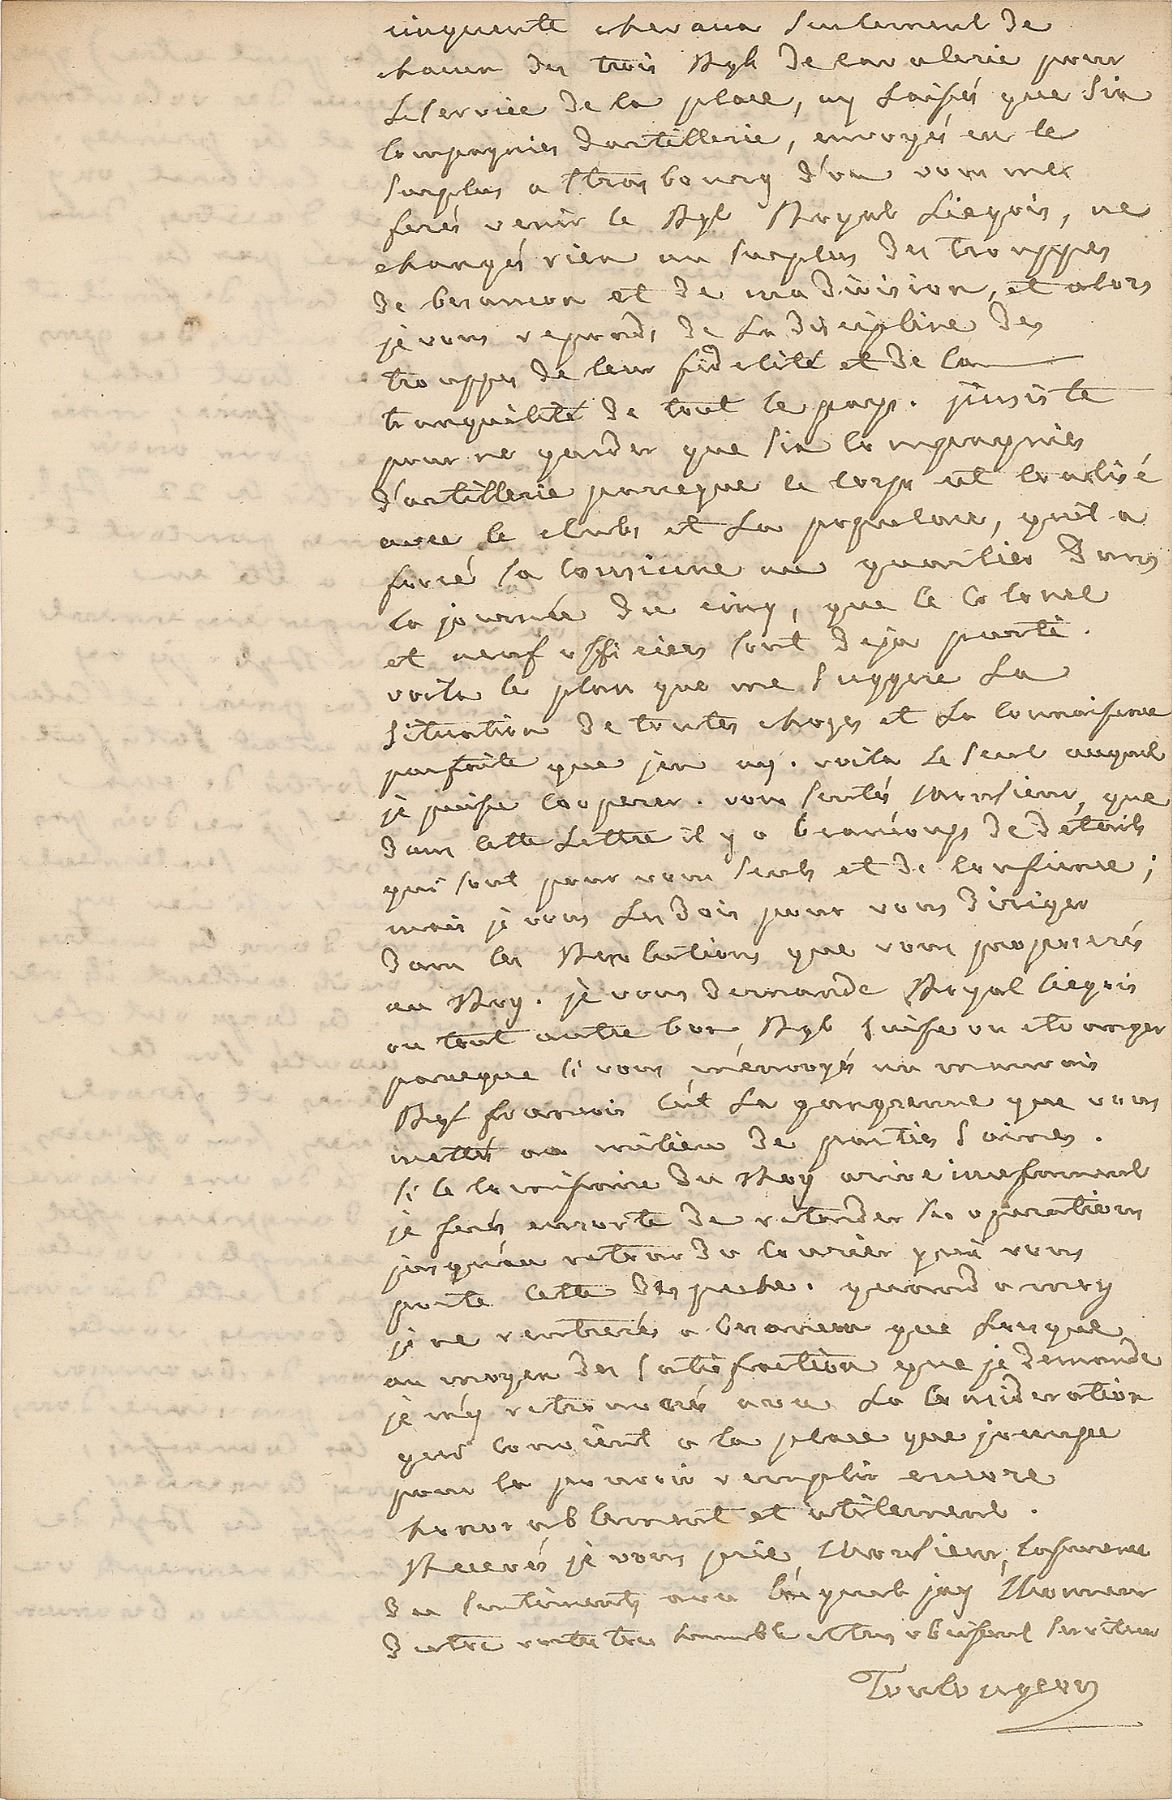 cinquente chevaux seulement de
chacun des trois Rgts de cavalerie pour
le service de la place, ny laissés que six
compagnies dartillerie, envoyés en le
surplus a strasbourg d'ou vous me
ferés venir le Rgt Royal Liegois, ne
changés rien au surplus des trouppes
de besancon et de ma division, et alors
je vous reponds de la discipline des
trouppes de leur fidelité et de la
tranquilité de tout le pays. j'insiste
pour ne garder que six compagnies
d'artillerie parceque le corps est coalisé
avec le clubs et la populace, quil a
forcé sa consigne au quartier dans
la journée du cinq, que le Colonel
et neuf officiers sont deja parti.
voila le plan que me suggere la
situation de toutes choses et la connaissance
parfaite que jen ay. voila le seul auquel
je puisse cooperer. vous sentés Monsieur, que
dans cette lettre il y a beaucoups de details
qui sont pour vous seuls et de confience;
mais je vous les dois pour vous diriger
dans les Resolutions que vous proposerés
au Roy. je vous demande Royal liegois
ou tout autre bon Rgt suisse ou etranger
parceque si vous m'envoyés un mauvais
Rgt francois c'est la gangrenne que vous
mettés au milieu de parties saines.
si le comissaire du Roy arive incessament
je ferés ensorte de retarder ses operations
jusqu'au retour du courier qui vous
porte cette despeche. quand a moy
je ne rentrerés a besancon que lorsque
au moyen des satisfaction que je demande
je m'y retrouverés avec la consideration
qui convient a la place que joccupe
pour la pouvoir remplir encore
honorablement et utilement.
Recevés je vous prie, Monsieur, lassurence
du sentiments avec lequel jay lhonneur
detre votre tres humble et tres obeissent serviteur
Toulongeon